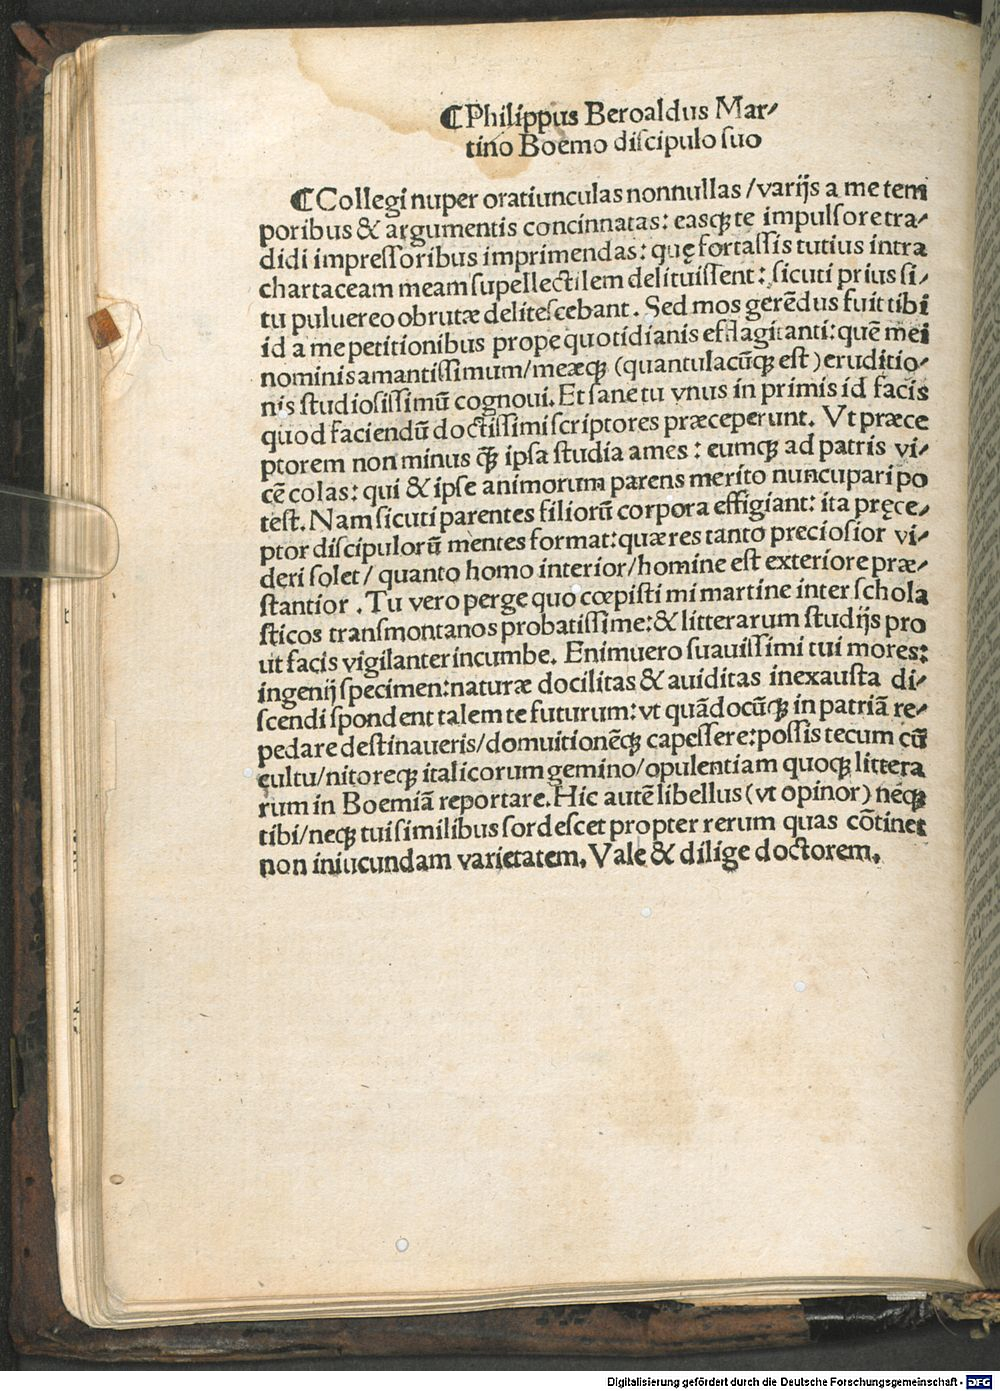 ¶Philippus Beroaldus Mar⸗
tino Boemo diſcipulo ſuo
¶Collegi nuper oratiunculas nonnullas / varijs a me tem
poribus & argumentis concinnatas: easq̢ te impulſore tra⸗
didi impreſſoribus imprimendas: quę fortaſſis tutius intra
chartaceam meam ſupellectilem delituiſſent: ſicuti prius ſi⸗
tu puluereo obrutæ deliteſcebant. Sed mos gerẽdus fuit tibi
id a me petitionibus prope quotidianis efflagitanti: quẽ mei
nominis amantiſſimum/meæq̢ (quantulacũq̢ eſt) eruditio⸗
nis ſtudioſiſſimũ cognoui. Et ſane tu vnus in primis id facis
quod faciendũ doctiſſimi ſcriptores præceperunt. Vt præce
ptorem non minus q̃ ipſa ſtudia ames: eumq̢ ad patris vi⸗
cẽ colas: qui & ipſe animorum parens merito nuncupari po
teſt. Nam ſicuti parentes filiorũ corpora effigiant: ita pręce⸗
ptor diſcipulorũ mentes format: quæ res tanto precioſior vi⸗
deri ſolet / quanto homo interior/homine eſt exteriore præ⸗
ſtantior. Tu vero perge quo cœpiſti mi martine inter ſchola
ſticos tranſmontanos probatiſſime: & litterarum ſtudijs pro
ut facis vigilanter incumbe. Enimuero ſuauiſſimi tui mores:
ingenij ſpecimen: naturæ docilitas & auiditas inexauſta di⸗
ſcendi ſpondent talem te futurum: vt quãdocũq̢ in patriã re⸗
pedare deſtinaueris/domuitionẽq̢ capeſſere: poſſis tecum cũ
cultu/nitoreq̢ italicorum gemino/opulentiam quoq̢ littera
rum in Boemiã reportare. Hic autẽ libellus (vt opinor) neq̢
tibi/neq̢ tui ſimilibus ſordeſcet propter rerum quas cõtinet
non iniucundam varietatem. Vale & dilige doctorem.
Digitalisierung gefördert durch die Deutsche Forschungsgemeinschaft - DFG